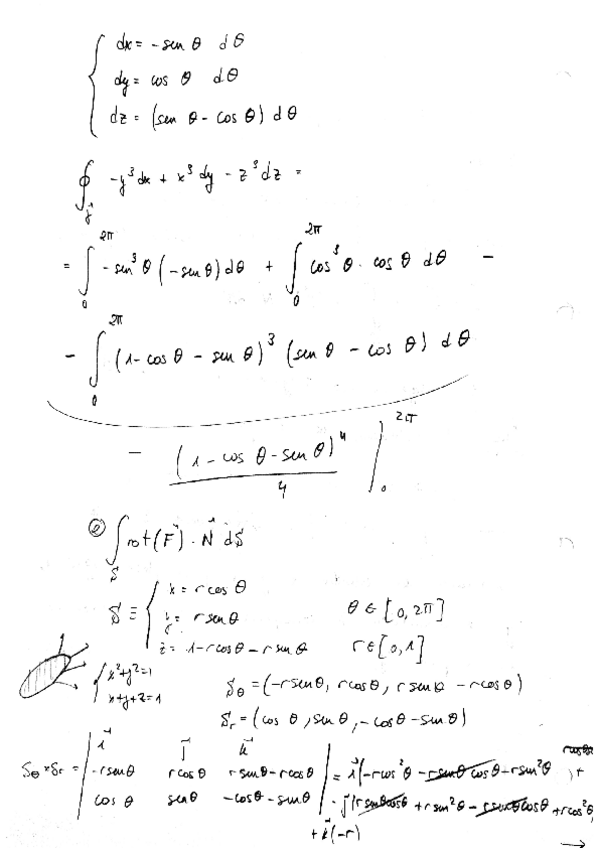 dx = - sen θ dθ
dy = cos θ dθ
dz = (sen θ - cos θ) dθ
∮γ⃗ -y³dx + x³dy - z³dz =
= ∫₀^2π -sen³θ (-sen θ)dθ + ∫₀^2π cos³θ · cos θ dθ -
- ∫₀^2π (1 - cos θ - sen θ)³ (sen θ - cos θ) dθ
- (1 - cos θ - sen θ)⁴ / 4 |₀^2π
② ∫S rot(F⃗) · N⃗ dS
S ≡ { x = r cos θ
y = r sen θ θ ∈ [0, 2π]
z = 1 - r cos θ - r sen θ r ∈ [0, 1]
{ x² + y² = 1
x + y + z = 1 Sθ = (-r sen θ, r cos θ, r sen θ - r cos θ)
Sr = (cos θ, sen θ, -cos θ - sen θ)
i⃗ j⃗ k⃗
Sθ × Sr = | -r sen θ r cos θ r sen θ - r cos θ | = i⃗(-r cos²θ - r sen θ cos θ - r sen²θ + r cos θ
cos θ sen θ -cos θ - sen θ - j⃗(r sen θ cos θ + r sen²θ - r sen θ cos θ + r cos²θ)
+ k⃗(-r)
→